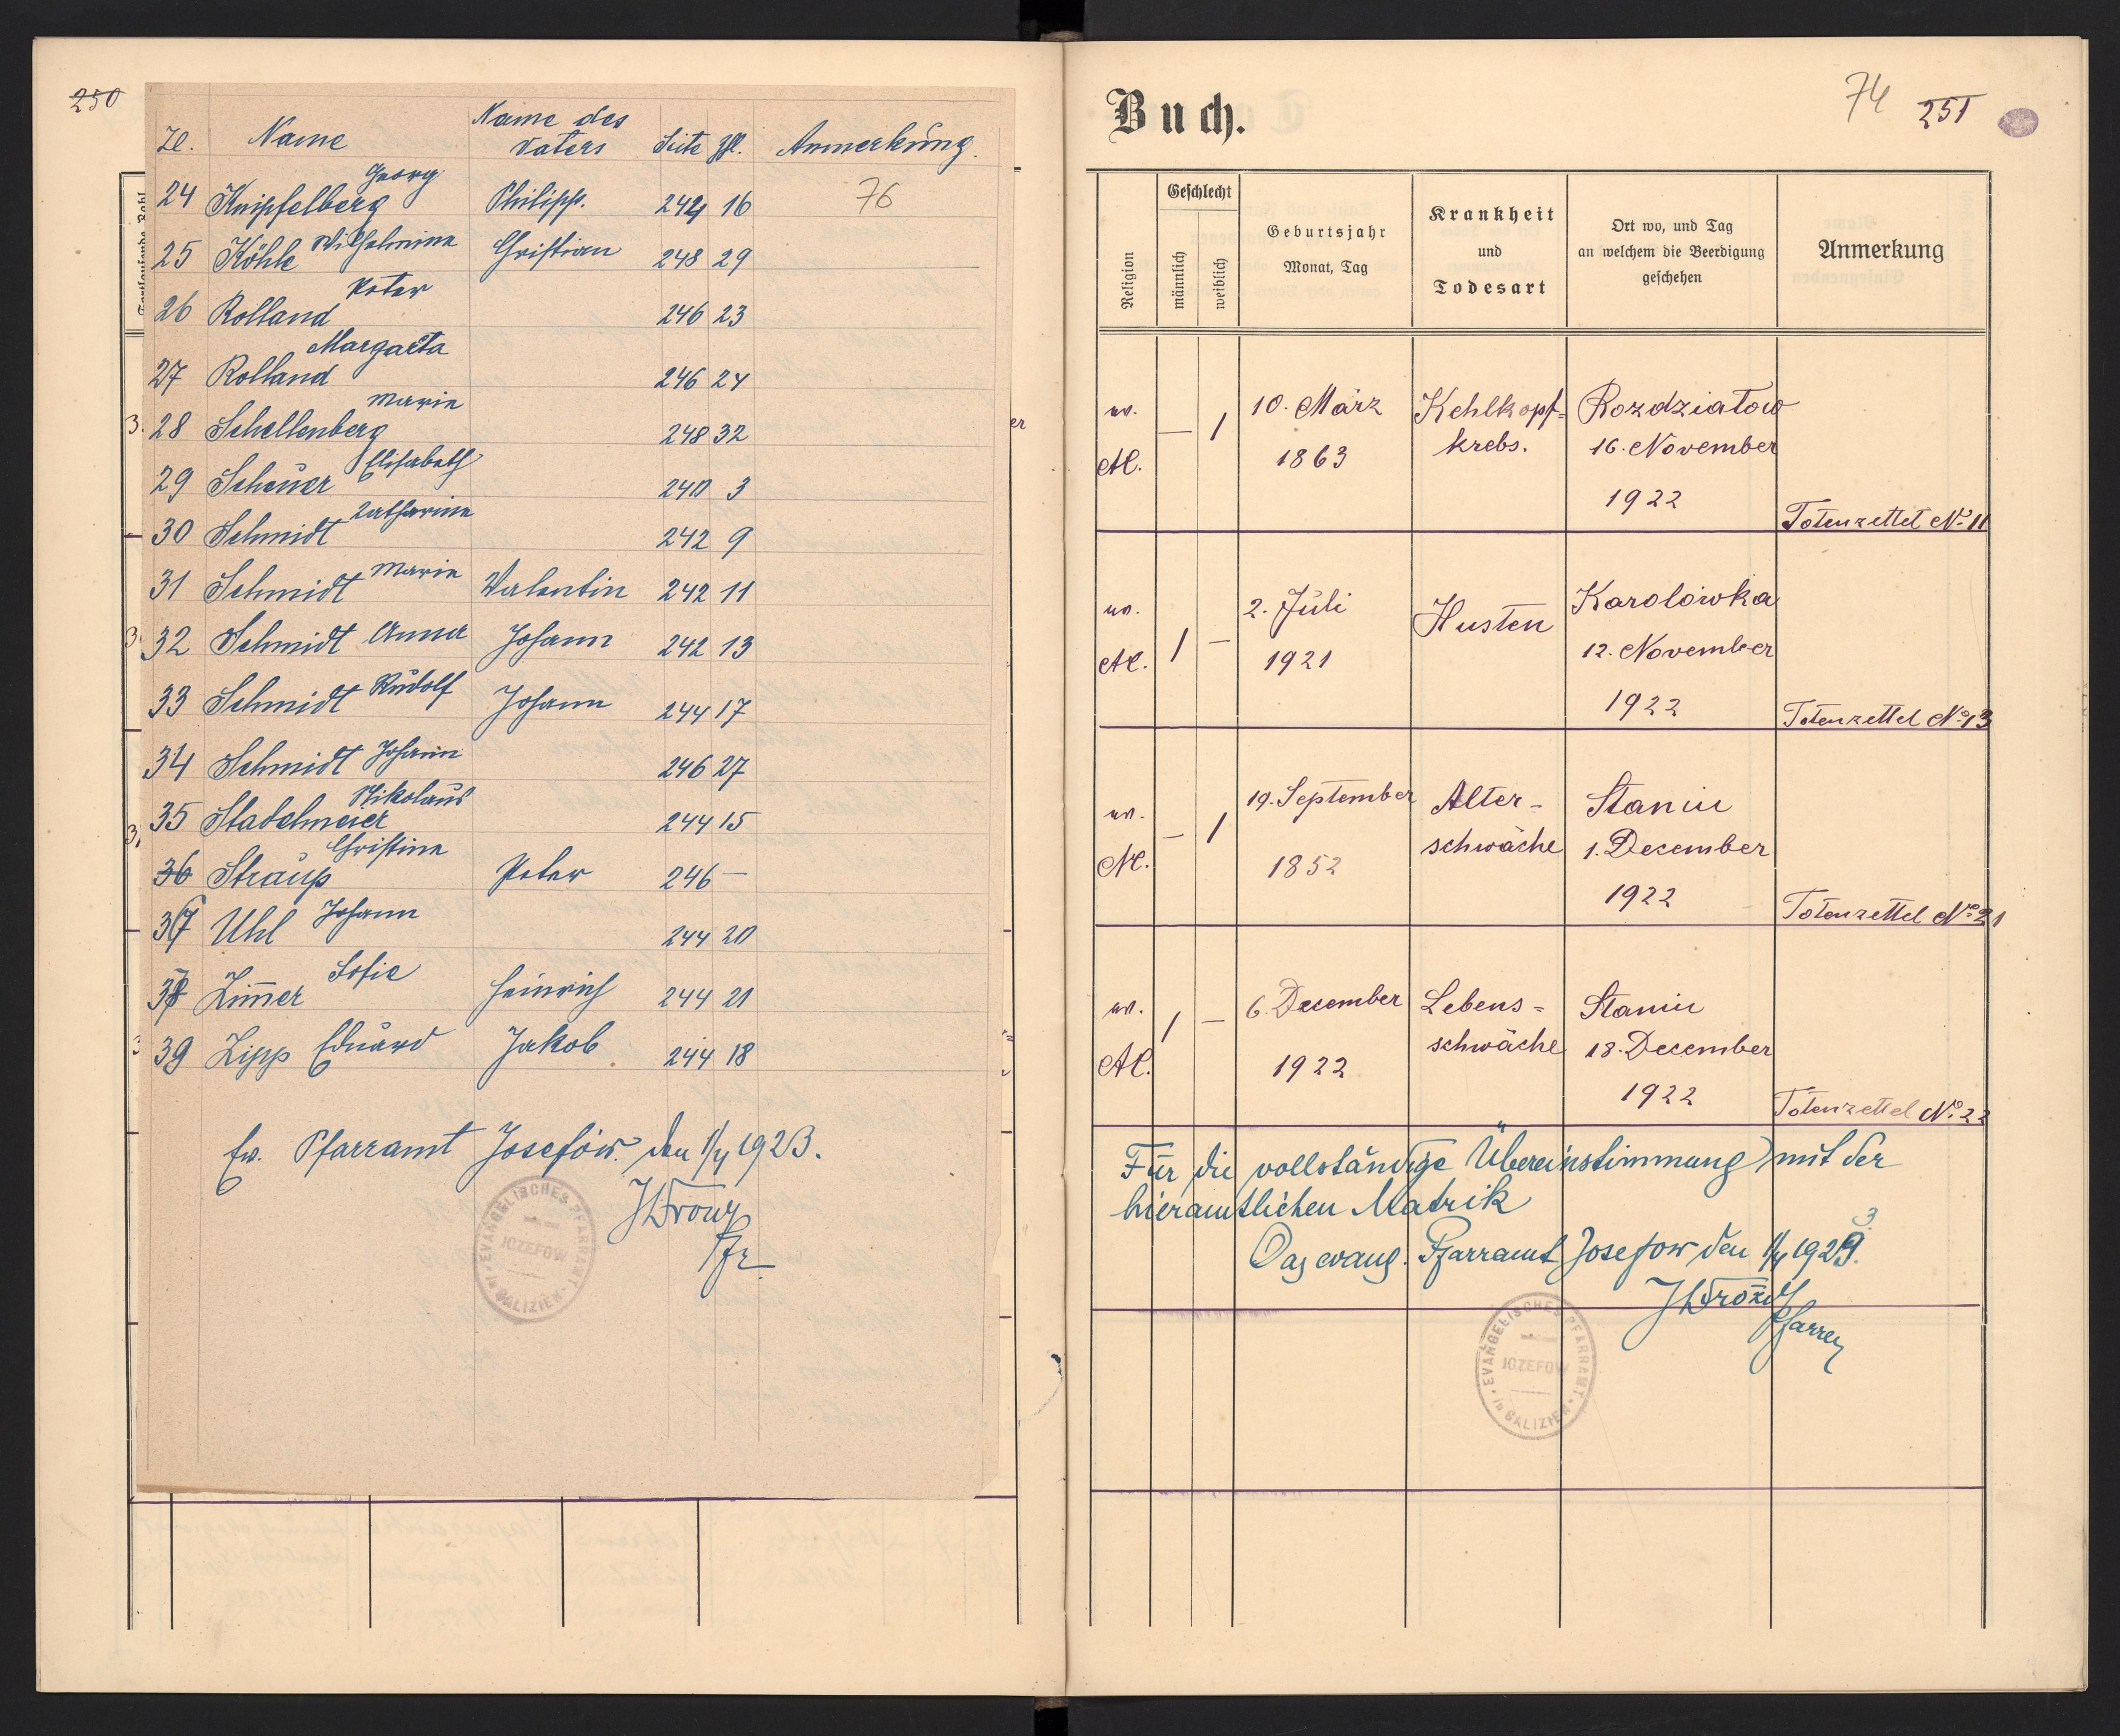 250
Zl. Name Name des Vaters Seite Zl. Anmerkung.
24 Knipfelberg Georg Philipp. 244 16 76
25 Köhle Wilhelmine Christian 248 29
26 Rolland Peter 246 23
27 Rolland Margareta 246 24
28 Schellenberg Marie 248 32
29 Scheuer Elisabeth 240 3
30 Schmidt Katharine 242 9
31 Schmidt Marie Valentin 242 11
32 Schmidt Anna Johann 242 13
33 Schmidt Rudolf Johann 244 17
34 Schmidt Johann 246 27
35 Stadelmeier Nikolaus 244 15
36 Straup Christine Peter 246 —
37 Uhl Johann 244 20
38 Zim̄er Sofie Heinrich 244 21
39 Zipp Eduard Jakob 244 18
Ev. Pfarramt Josefów. den 1/4 1923.
Pfr.
EVANGELISCHES PFARRAMT
JOZEFOW
in GALIZIEN
Buch.
74 251
Religion
Geschlecht
männlich
weiblich
Geburtsjahr
Monat, Tag
Krankheit
und
Todesart
Ort wo, und Tag
an welchem die Beerdigung
geschehen
Anmerkung
ev. — 1 10. März Kehlkopf= Rozdziatow
A.C. 1863 krebs. 16. November
1922 Totenzettel No 11
ev. 1 — 2. Juli Husten Karolowka
A.C. 1921 12. November
1922 Totenzettel No 13
ev. — 1 19. September Alter= Staniu
A.C. 1852 schwäche 1. December
1922 Totenzettel No 21
ev. 1 — 6. December Lebens= Staniu
A.C. 1922 schwäche 18. December
1922 Totenzettel No 22
Für die vollständige Übereinstimmung mit der
hieramtlichen Matrik
Das evang. Pfarramt Josefow den 1/4 1923.
Pfarrer
EVANGELISCHES PFARRAMT
JOZEFOW
in GALIZIEN